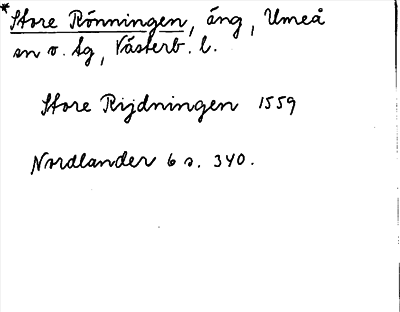 *Store Rönningen, äng, Umeå
sn o. tg, Västerb. l.
Store Rijdningen 1559
Nordlander 6 s. 340.